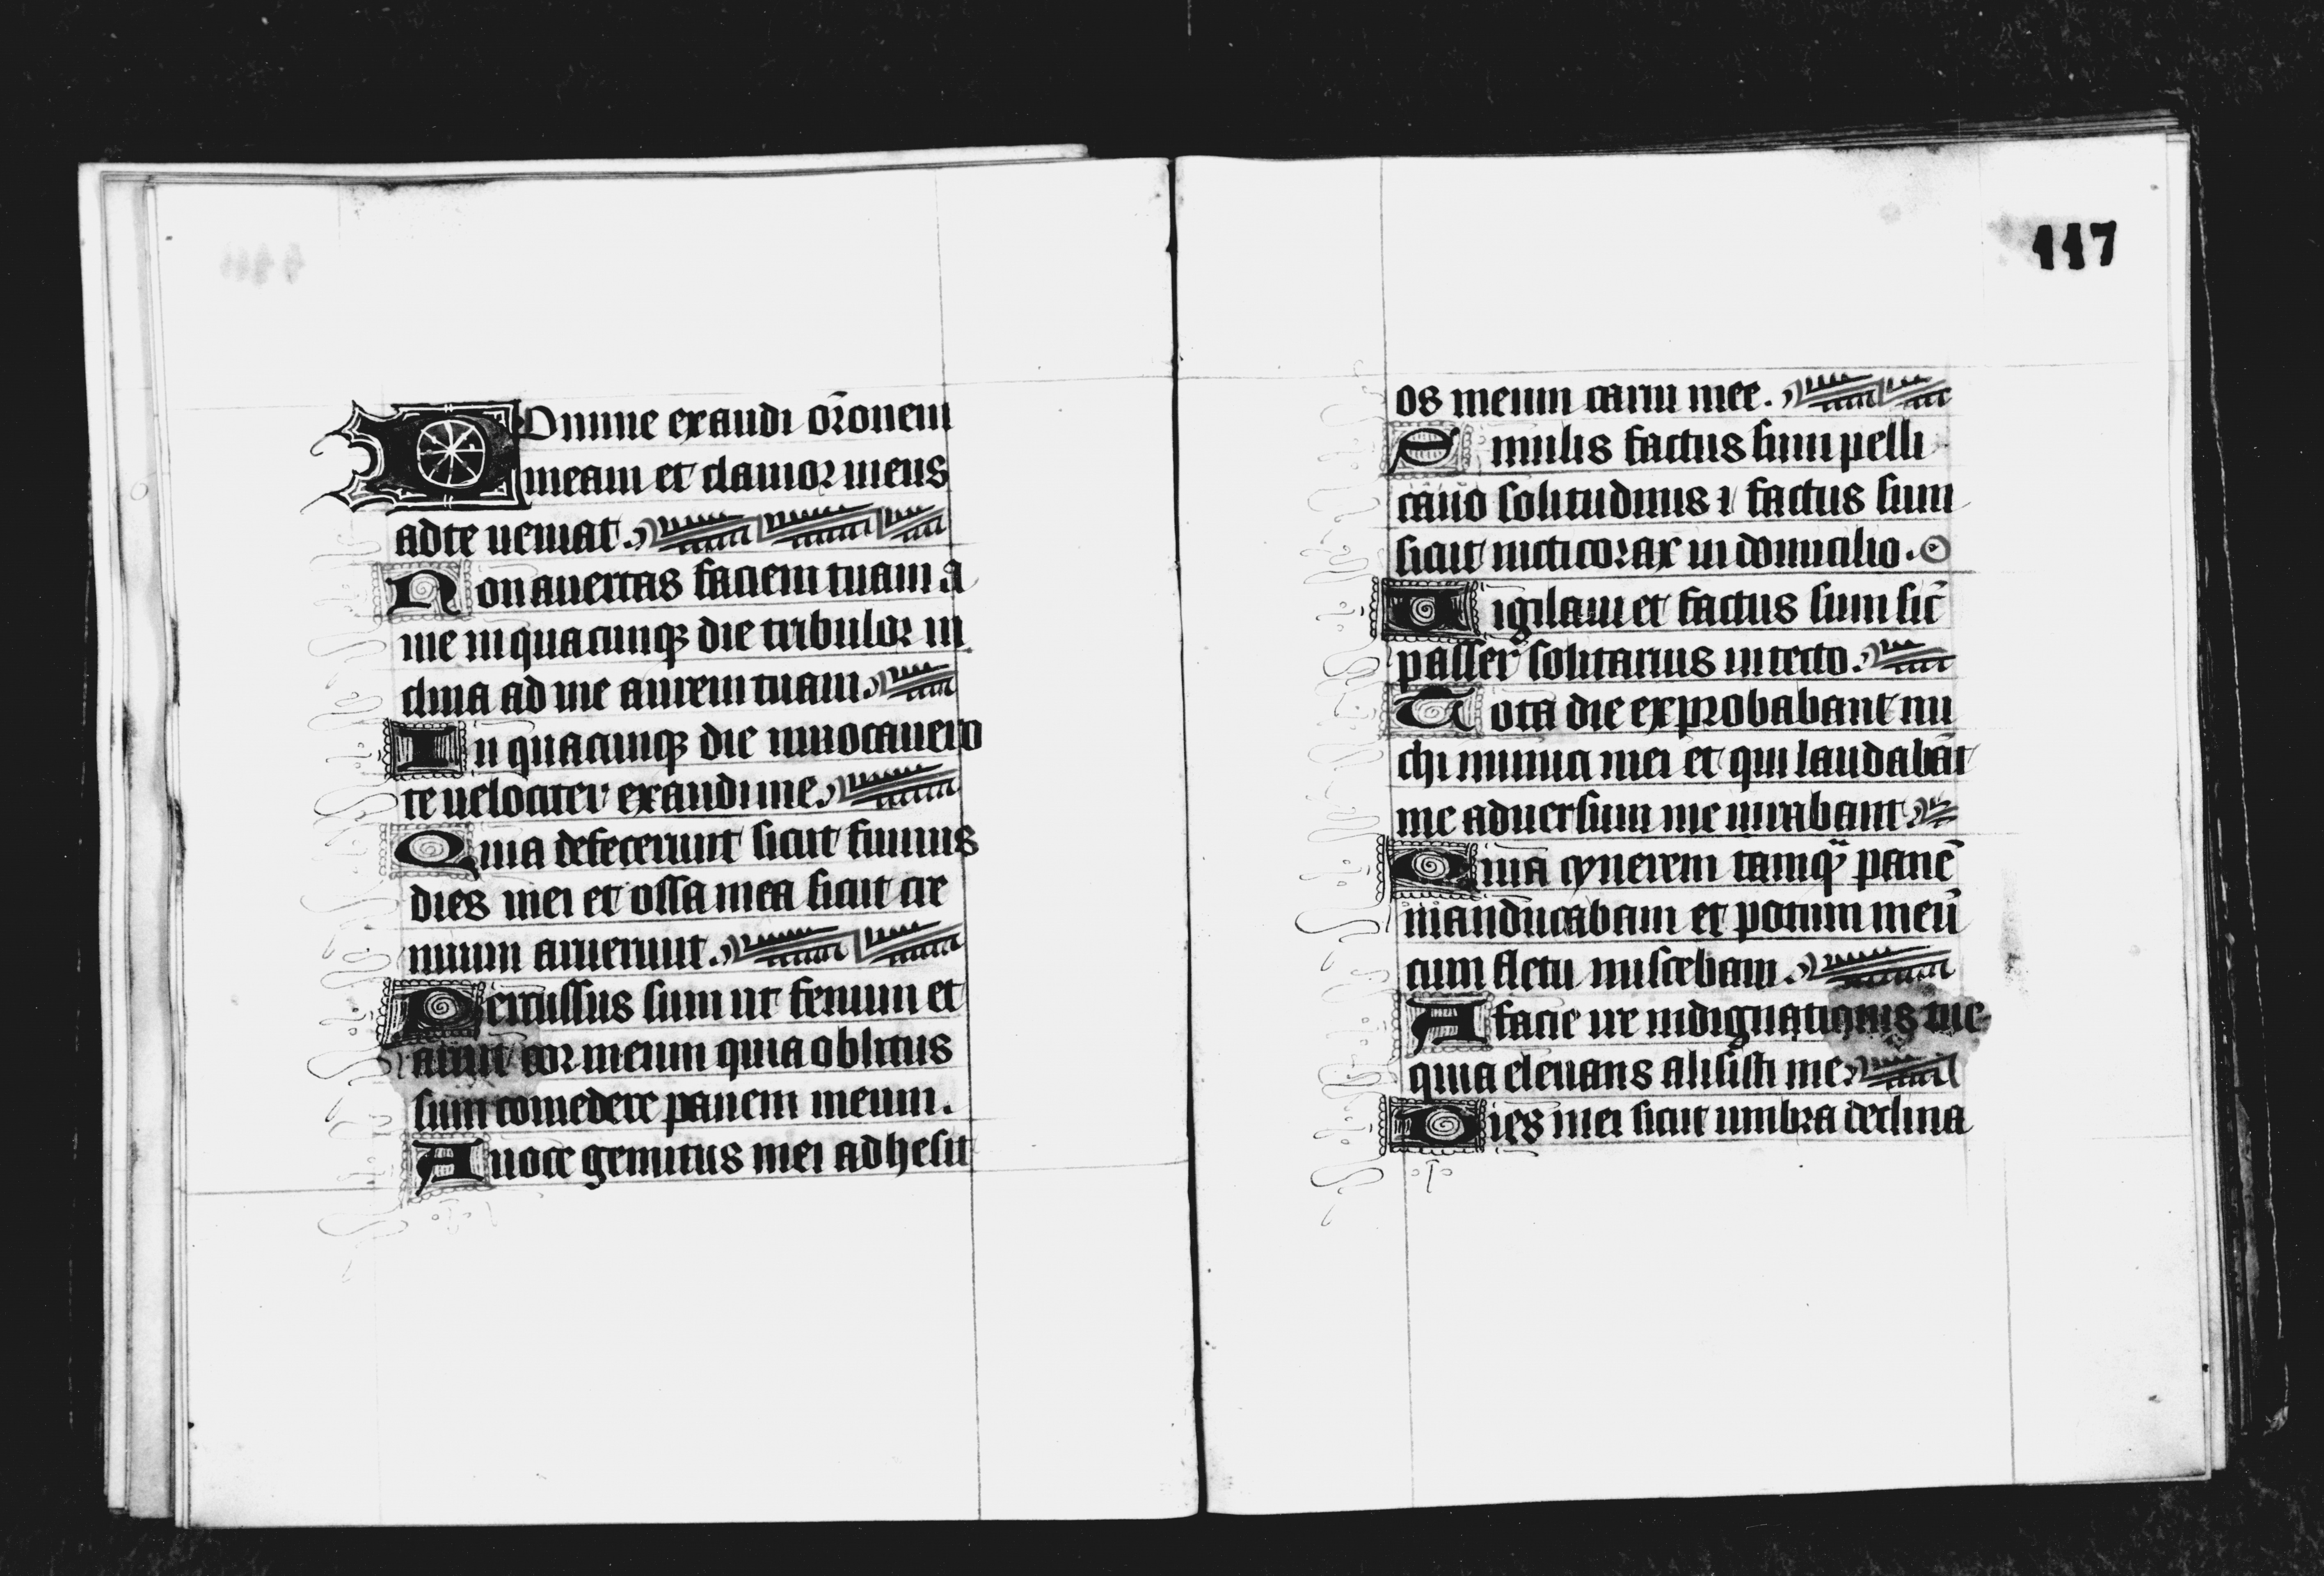 Domine exaudi or̄onem
meam et clamor meus
ad te ueniat.
Non auertas faciem tuam a
me in quacunqꝫ die tribulor in
clina ad me aurem tuam.
In quacunqꝫ die inuocauero
te uelociter exaudi me.
Quia defecerunt sicut fumus
dies mei et ossa mea sicut cre
mium aruerunt.
Percussus sum ut fenum et
aruit cor meum quia oblitus
sum comedere panem meum.
A uoce gemitus mei adhesit
117
os meum carni mee.
Similis factus sum pelli
cano solitudinis ⁊ factus sum
sicut nicticorax in domicilio.
Vigilaui et factus sum sic̄
passer solitarius in tecto.
Tota die exprobabant mi
chi inimici mei et qui laudabāt
me aduersum me iurabant
Quia cynerem tamqᷓ panē
manducabam et potum meū
cum fletu miscebam.
A facie ire indignationis tue
quia eleuans alisisti me.
Dies mei sicut umbra declina